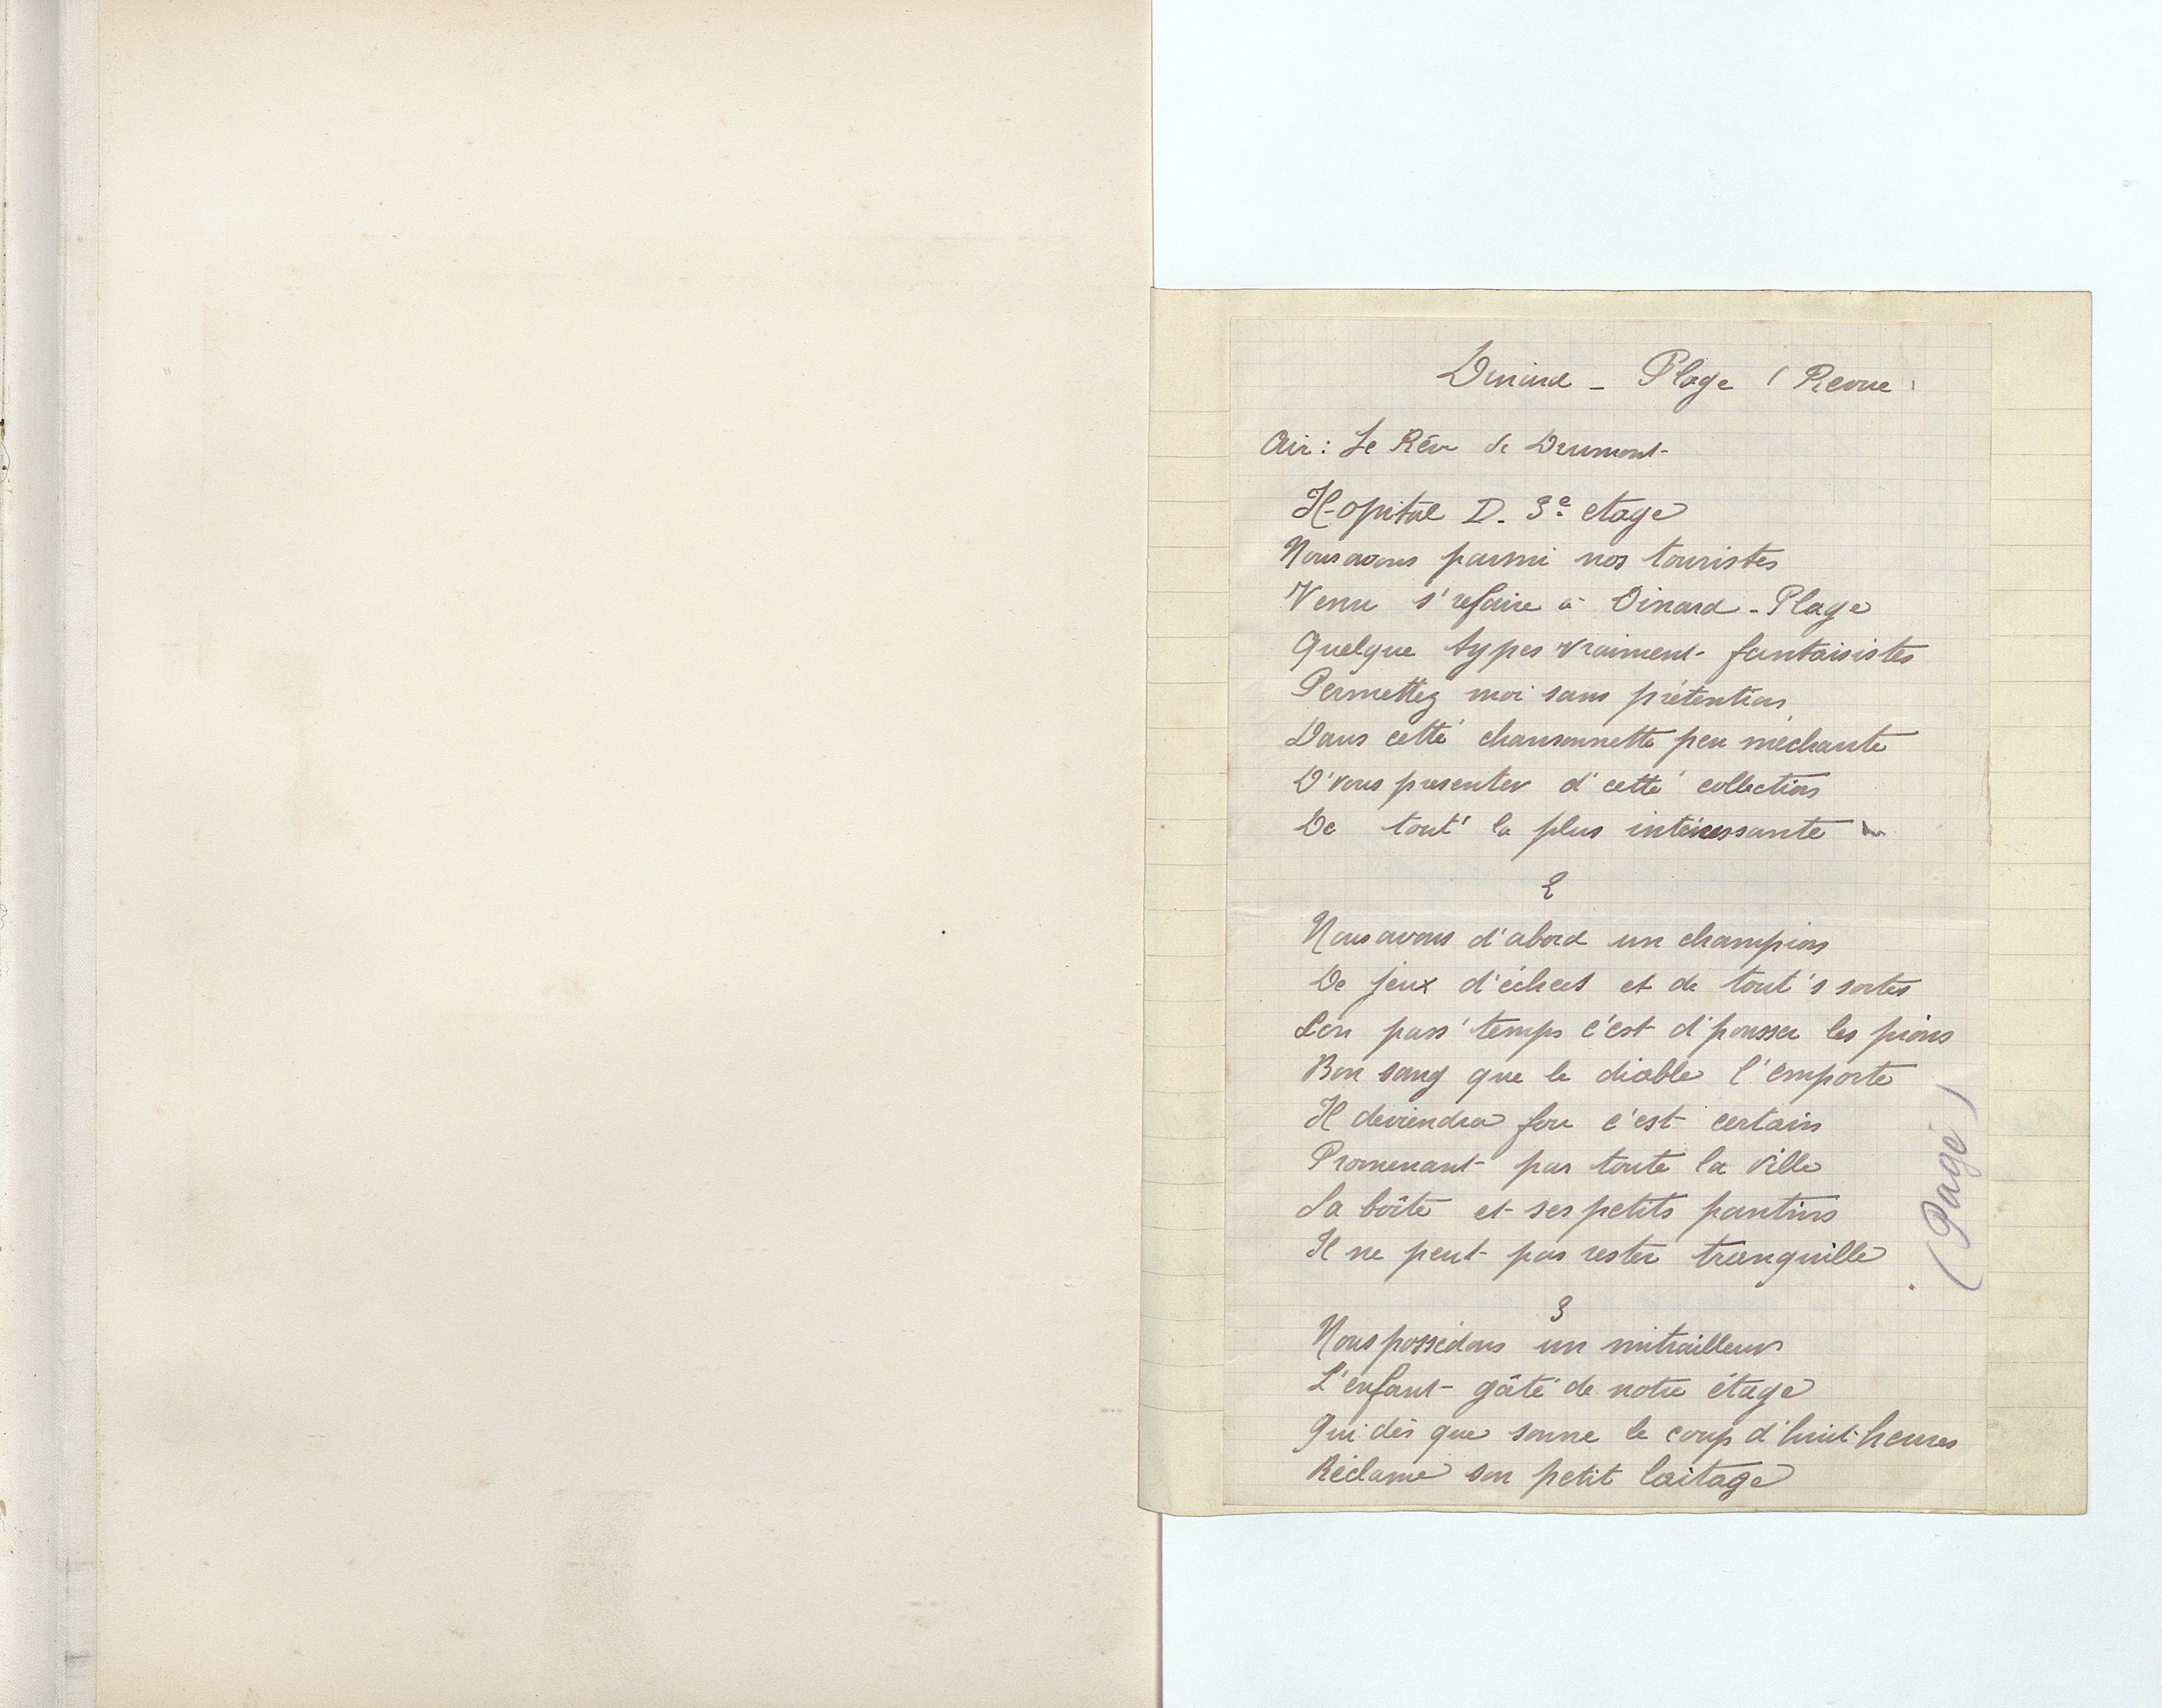 Dinard - Plage ( Revue )
Air : Le Rêve de Drumont
Hopital D. 3e etage
Nous avons parmi nos touristes
Venu s'refaire à Dinard - Plage
Quelque types vraiment fantaisistes
Permettez moi sans prétention
Dans cette chansonnette peu méchante
D'vous presenter d'cette collection
De tout' la plus intéressante
2
Nous avons d'abord un champion
De jeux d'échecs et de tout's sortes
Son pass'temps c'est d'pousser les pions
Bon sang que le diable l'emporte
Il deviendra fou c'est certain
Promenant par toute la ville
Sa boîte et ses petits pantins
Il ne peut pas rester tranquille
3
Nous possédons un mitrailleur
L'enfant gâté de notre étage
Qui dès que sonne le coup d'huit heures
Réclame son petit laitage
(Pagé)